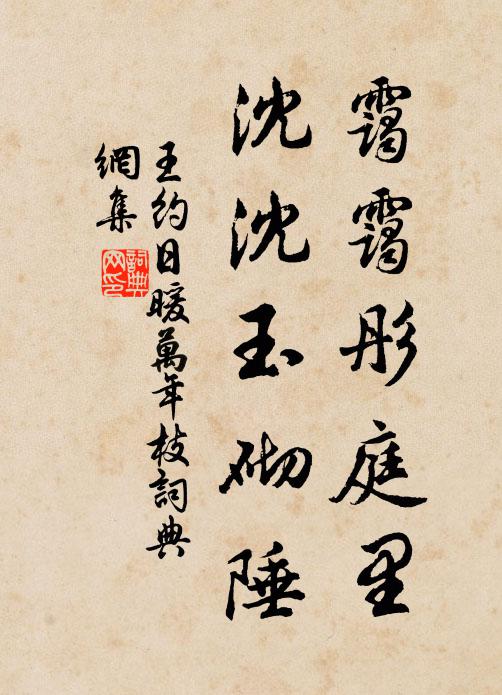 靄靄彤庭里
沈沈玉砌陲
王約日暖萬年枝詞典
網集
詞典
网印